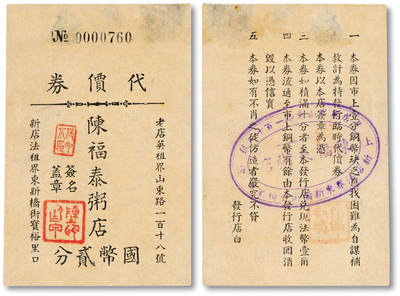 № 0000760
代價券
老店英租界山東路一百十八號
陳福泰粥店
簽名蓋章
國幣貳分
新店法租界東新橋街寶裕里口
一 本券因市上壹分銅幣缺乏找換困難為自謀補救計為特發行臨時代價券
二 本券以本店簽章為憑
三 本券如積滿壹分者至本發行店兌現法幣壹角
四 本券流通至市上銅幣有餘由本發行店收回消毀以憑信實
五 本券如有不肖之徒仿造者嚴究不貸
發行店白